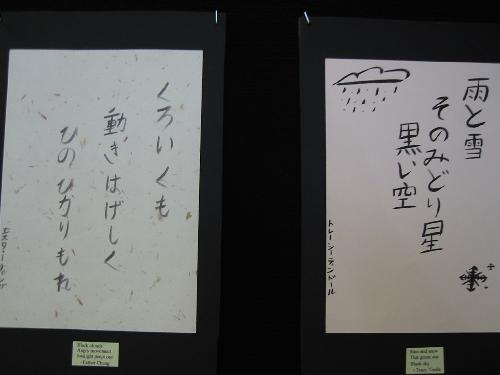 くろいくも
動きはげしく
ひのひかりもれ
エスター
Black clouds
Angry movement
Sunlight peeps out
-Esther Chung
雨と雪
そのみどり星
黒い空
Rain and snow
That green star
Black sky
- Tracy